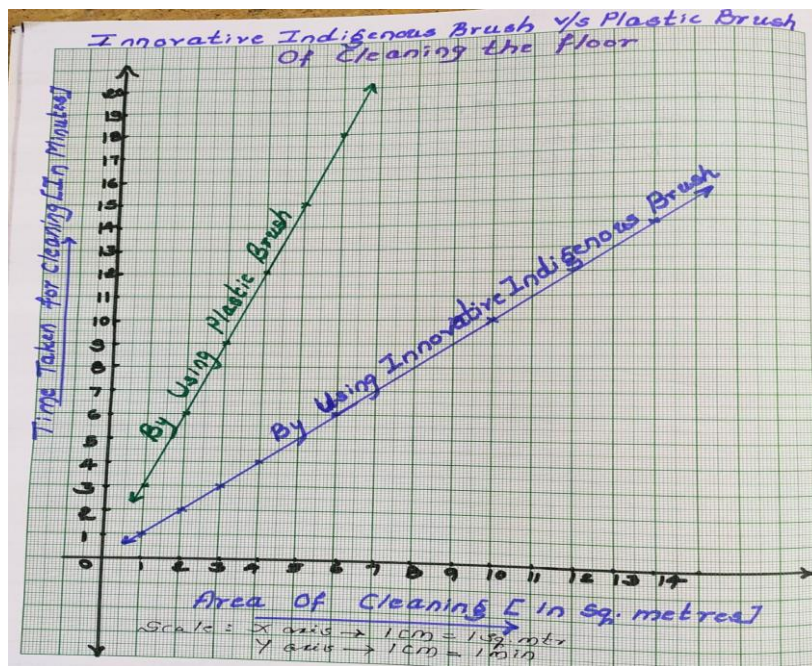 Innovative Indigenous Brush v/s Plastic Brush
Of Cleaning the floor
Time Taken for Cleaning [In Minutes]
20
19
18
17
16
15
14
13
12
11
10
9
8
7
6
5
4
3
2
1
By Using Plastic Brush
By Using Innovative Indigenous Brush
0 1 2 3 4 5 6 7 8 9 10 11 12 13 14
Area Of Cleaning [ in sq. metres]
Scale : X axis → 1cm = 1sq.mtr
Y axis → 1cm = 1min